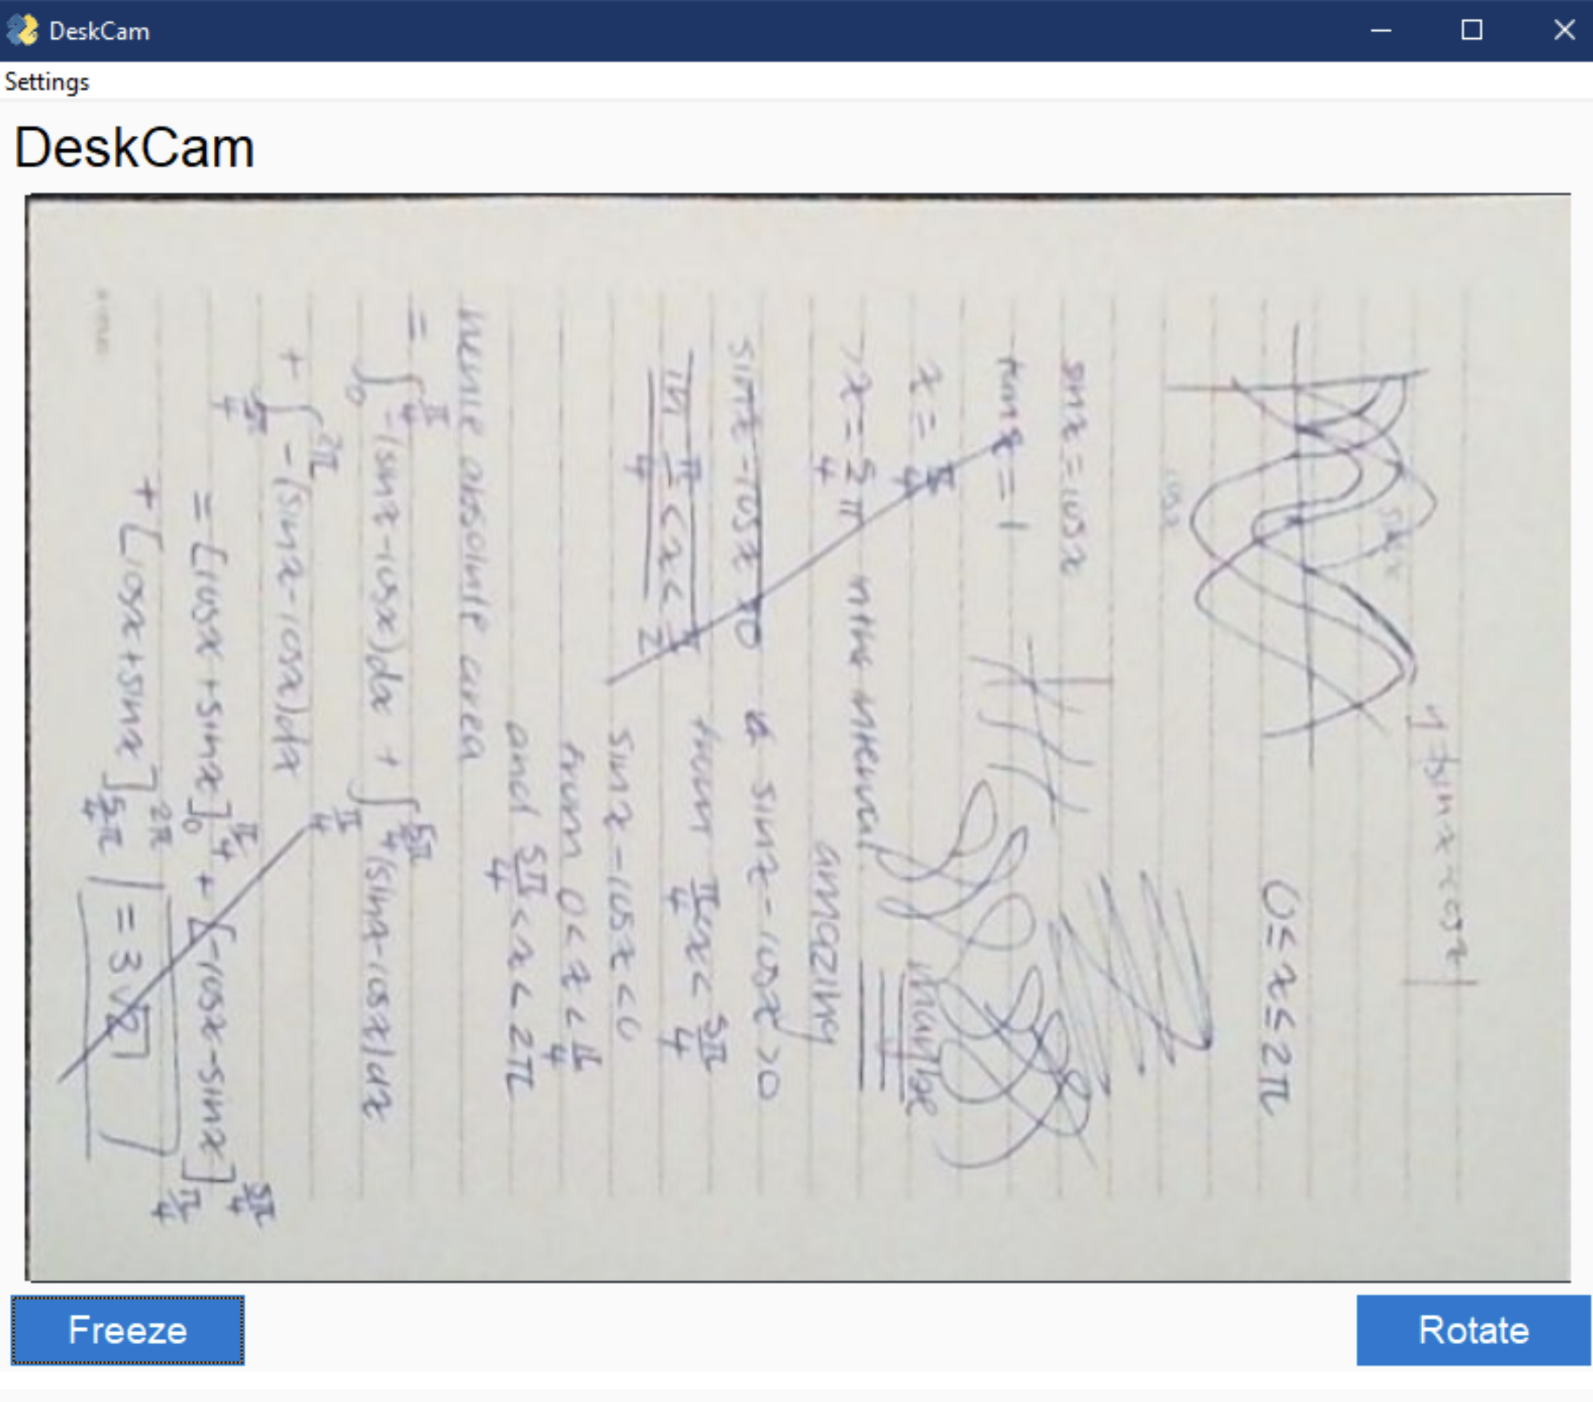 DeskCam
Settings
DeskCam
y = |sinx - cosx|
0 ≤ x ≤ 2π
sinx
cosx
sinx = cosx
tanx = 1
x = π/4
x = 5π/4
in the interval
amazing
sinx - cosx > 0
in π/4 < x < π/2
sinx - cosx > 0
from π/4 < x < 5π/4
sinx - cosx < 0
from 0 < x < π/4
and 5π/4 < x < 2π
hence absolute area
= ∫₀^(π/4) -(sinx - cosx)dx + ∫_(π/4)^(5π/4) (sinx - cosx)dx
+ ∫_(5π/4)^(2π) -(sinx - cosx)dx
= [cosx + sinx]₀^(π/4) + [-cosx - sinx]_(π/4)^(5π/4)
+ [cosx + sinx]_(5π/4)^(2π) = 3√2
Freeze
Rotate